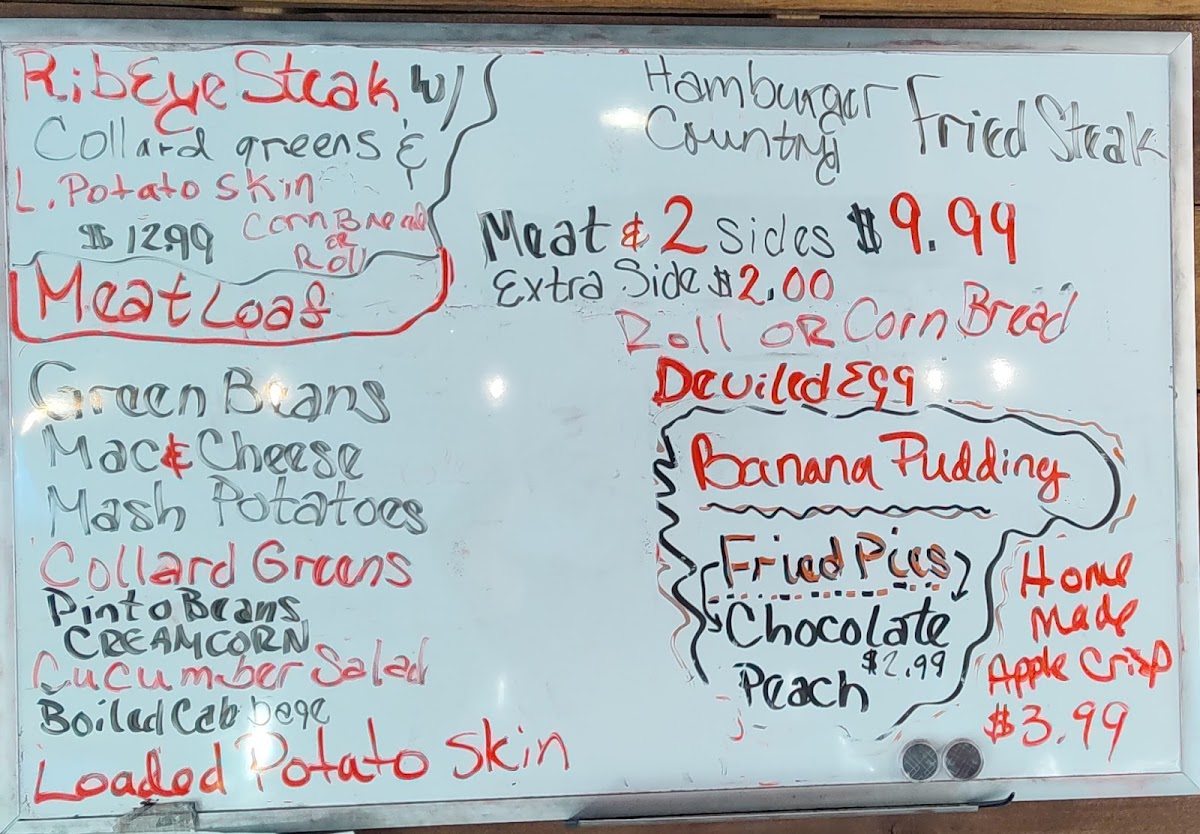 RibEye Steak w/
Collard greens &
L. Potato Skin
$12.99 Corn Bread
OR
Roll
Meat Loaf
Green Beans
Mac & Cheese
Mash Potatoes
Collard Greens
Pinto Beans
CREAM CORN
Cucumber Salad
Boiled Cabbege
Loaded Potato Skin
Hamburger
Country Fried Steak
Meat & 2 Sides $9.99
Extra Side $2.00
Roll OR Corn Bread
Deviled Egg
Banana Pudding
Fried Pies
Chocolate
$2.99
Peach
Home
Made
Apple Crisp
$3.99